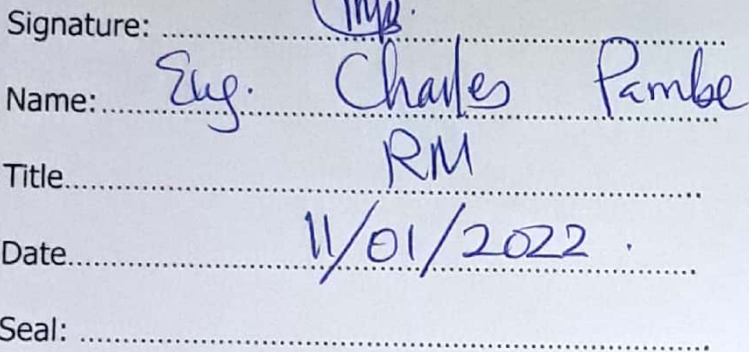 Signature: ........................................
Name: Eng. Charles Pambe
Title RM
Date 11/01/2022.
Seal: ........................................